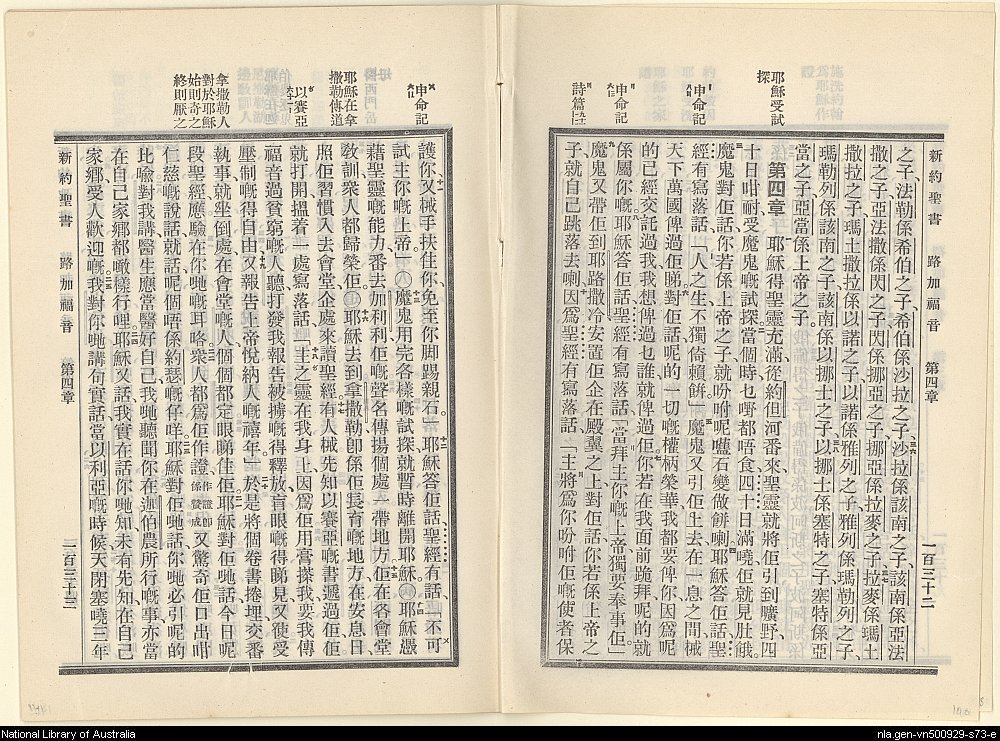 耶穌受試探
申命記
申命記
詩篇
新約聖書 路加福音 第四章 一百三十二
之子、法勒係希伯之子、希伯係沙拉之子、沙拉係該南之子、該南係亞法
撒之子、亞法撒係閃之子、閃係挪亞之子、挪亞係拉麥之子、拉麥係瑪土
撒拉之子、瑪土撒拉係以諾之子、以諾係雅列之子、雅列係瑪勒列之子、
瑪勒列係該南之子、該南係以挪士之子、以挪士係塞特之子、塞特係亞
當之子、亞當係上帝之子。
第四章 耶穌得聖靈充滿、從約但河番來、聖靈就將佢引到曠野、四
十日咁耐、受魔鬼嘅試探、當個時乜嘢都唔食、四十日滿曉、佢就見肚餓。
魔鬼對佢話、你若係上帝之子、就吩咐呢嚿石變做餅喇。耶穌答佢話、聖
經有寫落話、「人之生、不獨倚賴餅。」魔鬼又引佢上去、在一息之間、械
天下萬國俾過佢睇、對佢話、呢的一切嘅權柄榮華、我都要俾你、因爲呢
的已經交託過我、我想俾過乜誰、就俾過佢、你若在我面前跪拜、呢的就
係屬你嘅。耶穌答佢話、聖經有寫落話、「當拜主你嘅上帝、獨要奉事佢。」
魔鬼又帶佢到耶路撒冷、安置佢企在殿翼之上、對佢話、你若係上帝之
子、就自己跳落去喇、因爲聖經有寫落話、「主將爲你吩咐佢嘅使者保
申命記
耶穌在拿撒勒傳道
以賽亞
拿撒勒人對於耶穌始則奇之終則厭之
護你、又械手扶住你、免至你脚踢親石。」耶穌答佢話、聖經有話、「不可
試主你嘅上帝。」魔鬼用完各樣嘅試探、就暫時離開耶穌。耶穌憑
藉聖靈嘅能力、番去加利利、佢嘅聲名傳揚個處一帶地方、佢在各會堂
教訓衆人、都歸榮佢。耶穌去到拿撒勒、卽係佢長育嘅地方、在安息日、
照佢習慣、入去會堂、企處來讀聖經、有人械先知以賽亞嘅書遞過佢、佢
就打開、搵着一處寫落話、「主之靈在我身上、因爲佢用膏搽我、要我傳
福音過貧窮嘅人聽、打發我報告被擄嘅得釋放、盲眼嘅得睇見、又使受
壓制嘅得自由、又報告上帝悅納人嘅禧年。」於是將個卷書捲埋、交番
執事、就坐倒處、在會堂嘅人、個個都定眼睇住佢。耶穌對佢哋話、今日呢
段聖經應驗在你哋嘅耳咯。衆人都爲佢作證、作證卽係贊成又驚奇佢口出咁
仁慈嘅說話、就話、呢個唔係約瑟嘅仔咩。耶穌對佢哋話、你哋必引呢的
比喻對我講、醫生應當醫好自己、我哋聽聞你在迦伯農所行嘅事、亦當
在自己家鄉都噉樣行哩。耶穌又話、我實在話你哋知、未有先知在自己
家鄉受人歡迎嘅、我對你哋講句實話、當以利亞嘅時候、天閉塞曉三年
新約聖書 路加福音 第四章 一百三十三
National Library of Australia
nla.gen-vn500929-s73-e